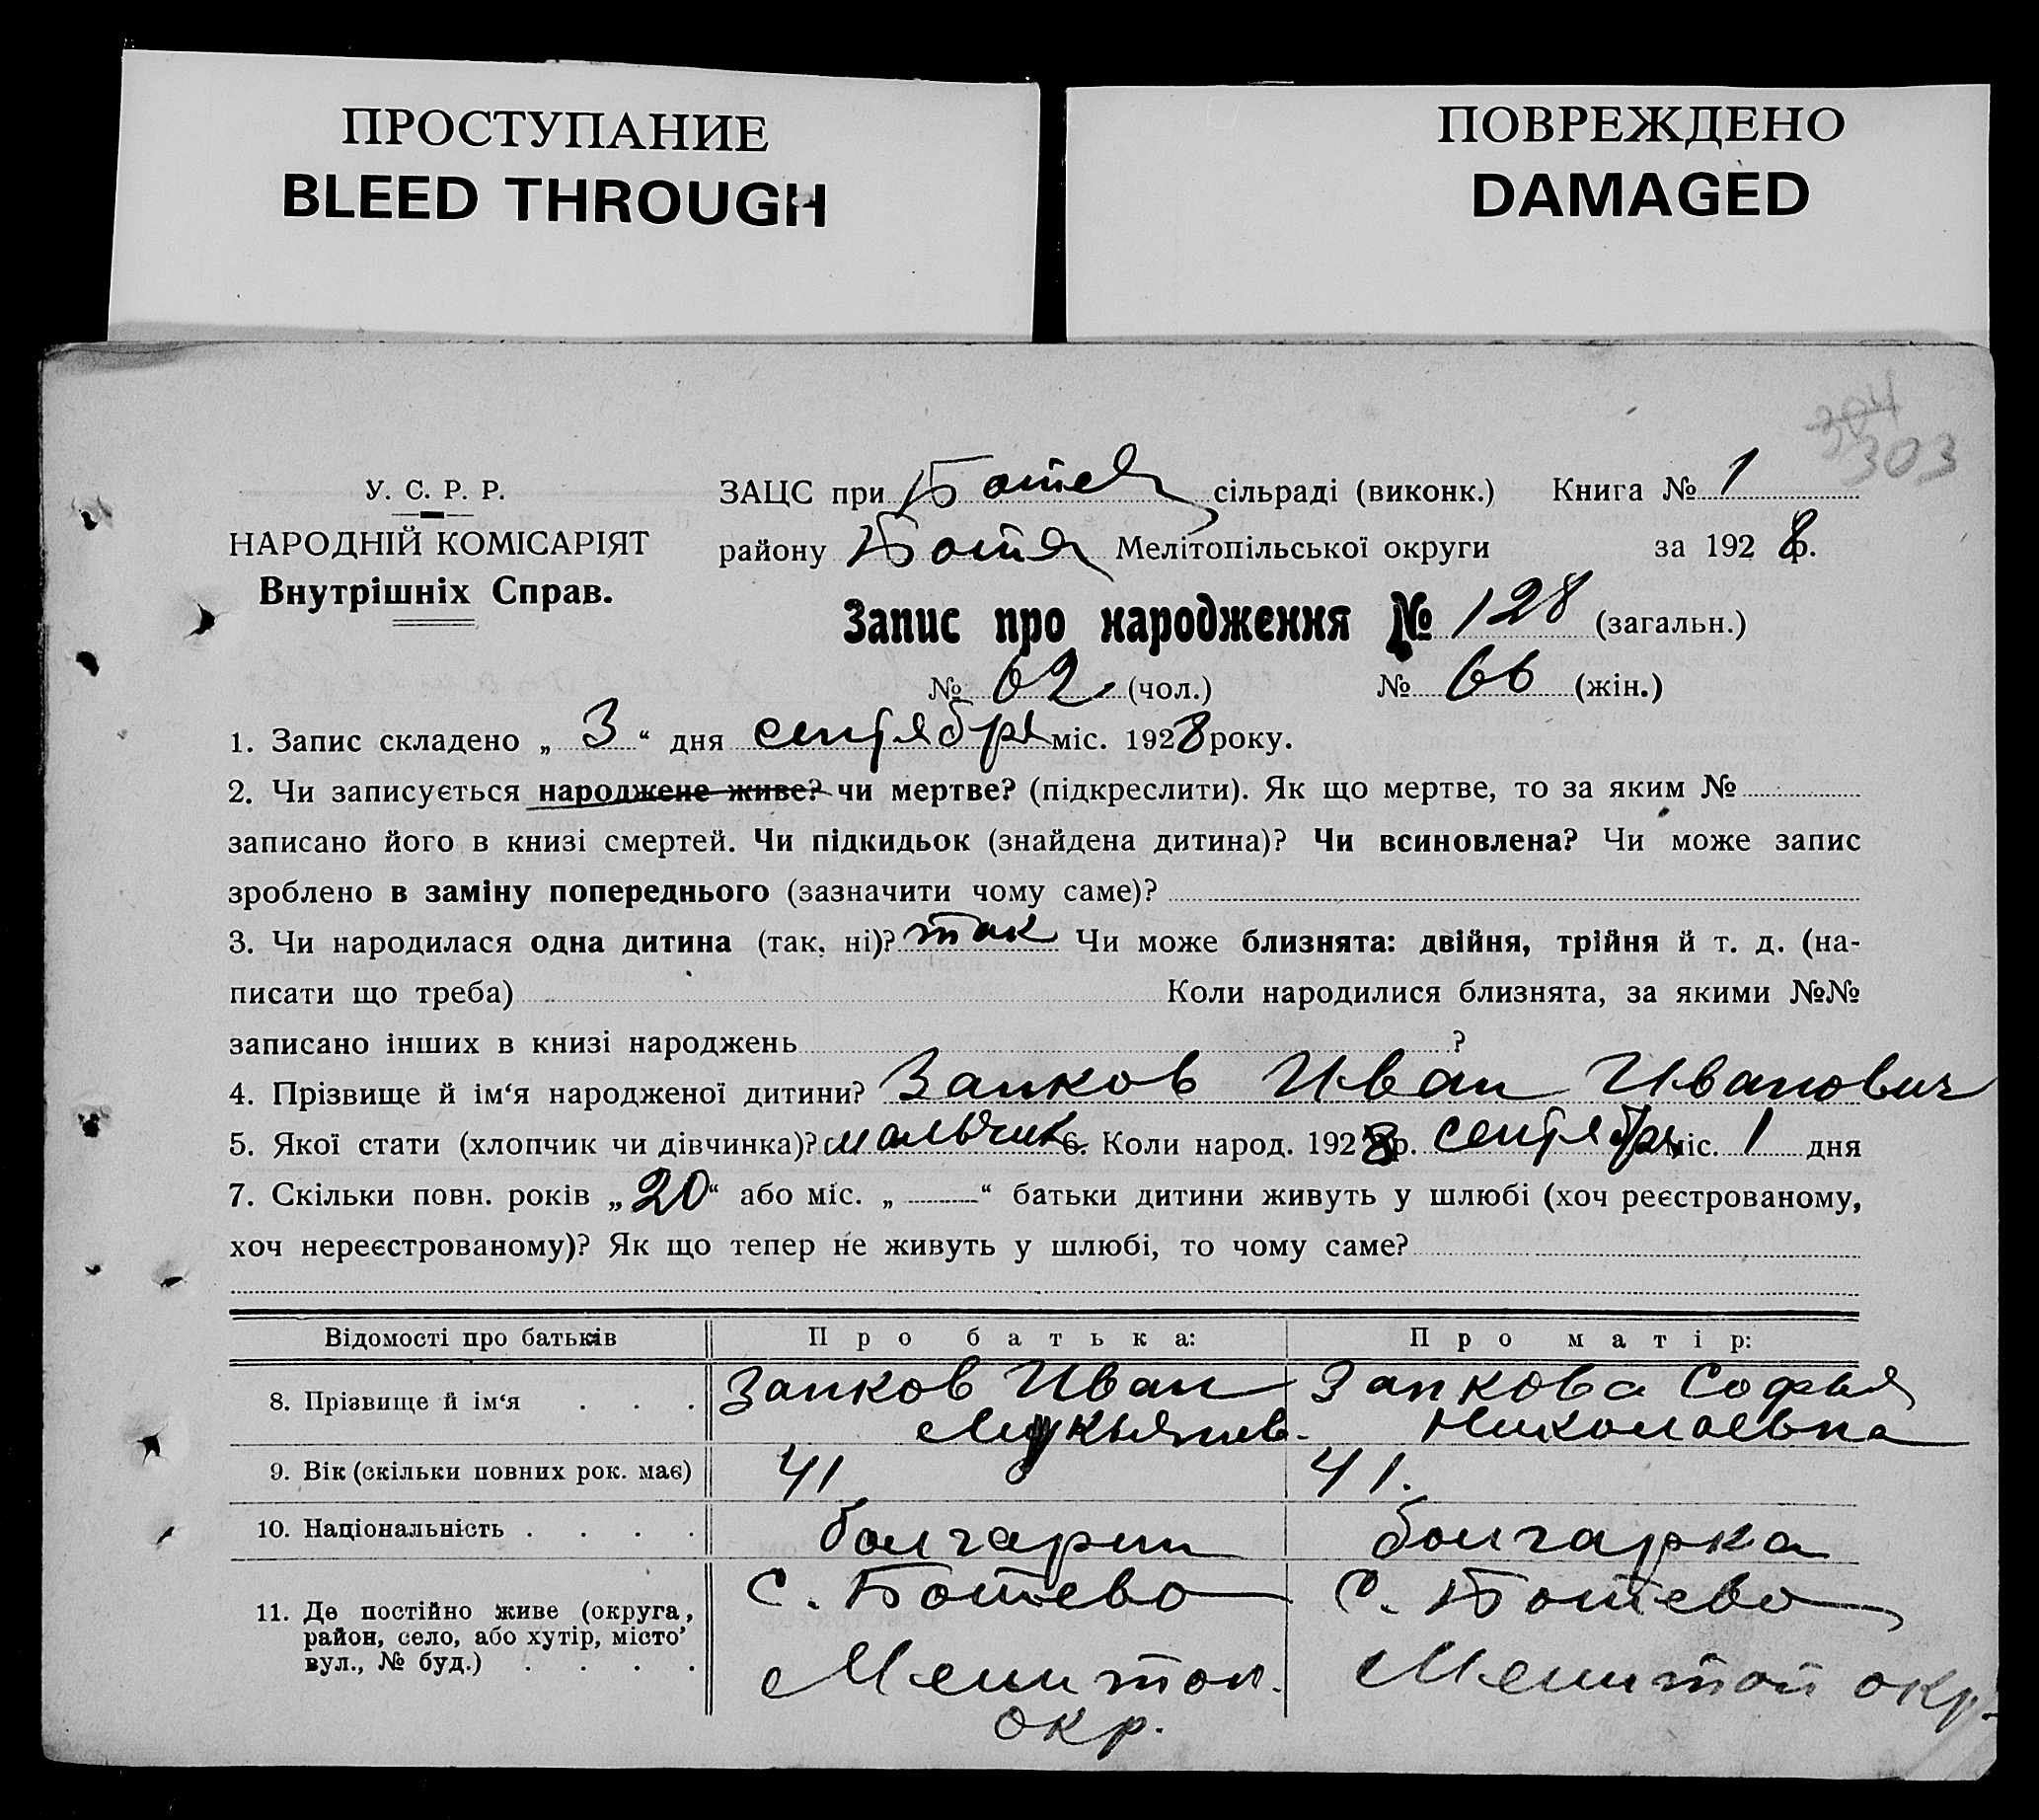 ПРОСТУПАНИЕ
BLEED THROUGH
ПОВРЕЖДЕНО
DAMAGED
304
303
У. С. Р. Р.
НАРОДНІЙ КОМІСАРІЯТ
Внутрішніх Справ.
ЗАЦС при Ботев сільраді (виконк.) Книга № 1
району Ботев Мелітопільської округи за 1928 р.
Запис про народження № 128 (загальн.)
№ 62 (чол.) № 66 (жін.)
1. Запис складено „ 3 “ дня сентября міс. 1928 року.
2. Чи записується народжене живе? чи мертве? (підкреслити). Як що мертве, то за яким №
записано його в книзі смертей. Чи підкидьок (знайдена дитина)? Чи всиновлена? Чи може запис
зроблено в заміну попереднього (зазначити чому саме)?
3. Чи народилася одна дитина (так, ні)? так Чи може близнята: двійня, трійня й т. д. (на-
писати що треба) Коли народилися близнята, за якими №№
записано інших в книзі народжень ?
4. Прізвище й ім‘я народженої дитини? Запков Иван Иванович
5. Якої стати (хлопчик чи дівчинка)? мальчик 6. Коли народ. 1928 р. сентября міс. 1 дня
7. Скільки повн. років „20“ або міс. „ — “ батьки дитини живуть у шлюбі (хоч реєстрованому,
хоч нереєстрованому)? Як що тепер не живуть у шлюбі, то чому саме?
Відомості про батьків Про батька: Про матір:
8. Прізвище й ім‘я . . . Запков Иван Запкова Софья
Николаевна
9. Вік (скільки повних рок. має) 41 41.
10. Національність . . . . болгарин болгарка
11. Де постійно живе (округа, с. Ботево с. Ботево
район, село, або хутір, місто’
вул., № буд.) . . . . Мелитоп. Мелитоп окр.
окр.